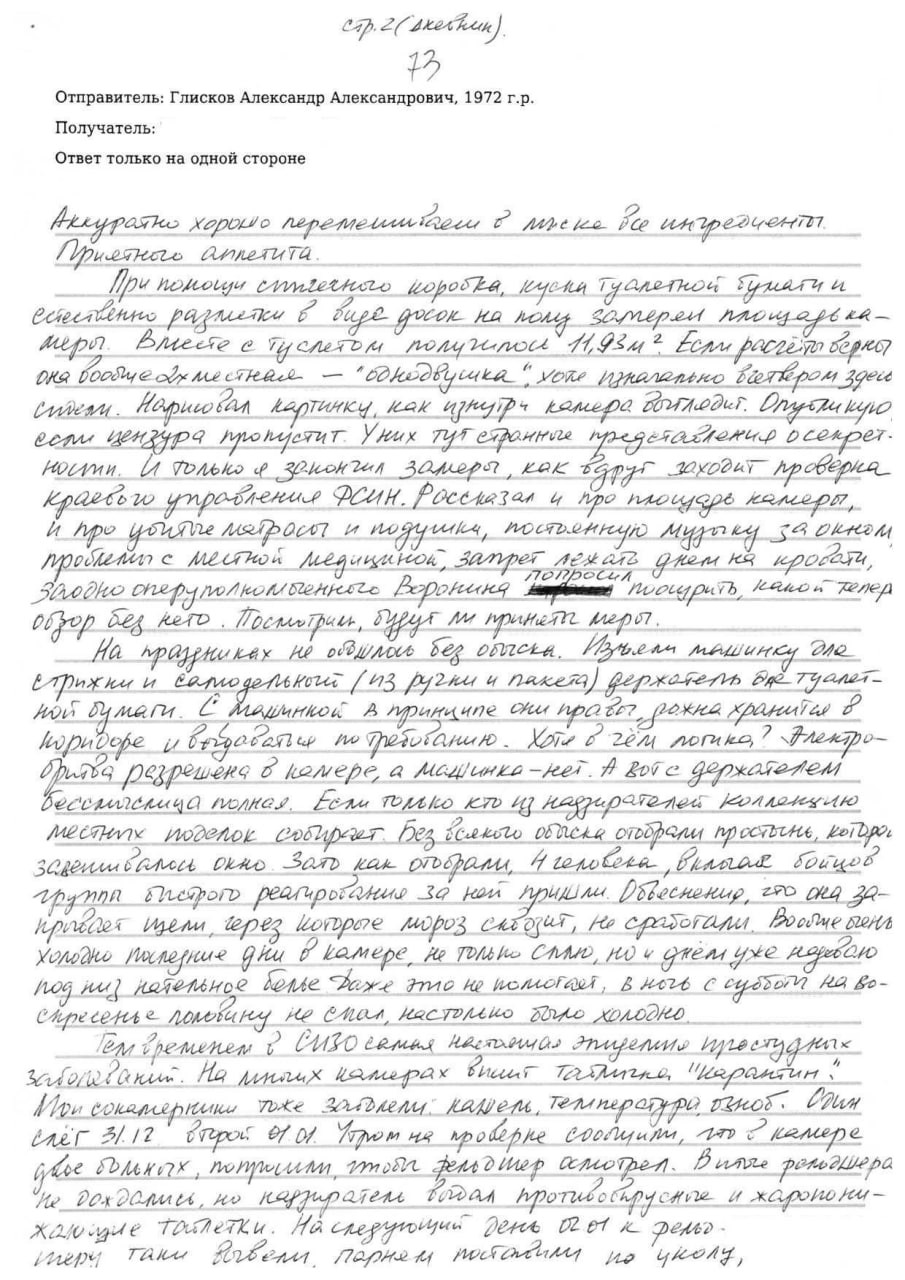 стр.2 (дневник).
73
Отправитель: Глисков Александр Александрович, 1972 г.р.
Получатель:
Ответ только на одной стороне
Аккуратно хорошо перемешиваем в миске все ингредиенты.
Приятного аппетита.
При помощи спичечного коробка, куска туалетной бумаги и
естественно разметки в виде досок на полу замерен площадь ка-
меры. Вместе с туалетом получилось 11,93м². Если расчёты верны
она вообще 2хместная – "однодвушка", хотя изначально вчетвером здесь
сидели. Нарисовал картинку, как изнутри камера выглядит. Опубликую,
если цензура пропустит. У них тут странные представления о секрет-
ности. И только я закончил замеры, как вдруг заходит проверка
краевого управления ФСИН. Рассказал и про площадь камеры,
и про убитые матрасы и подушки, постоянную музыку за окном,
проблемы с местной медициной, запрет лежать днем на кровати,
заодно оперуполномоченного Воронина попросил пошурить, какой тепер
обзор без него. Посмотрим, будут ли приняты меры.
На праздниках не обошлось без обыска. Изъяли машинку для
стрижки и самодельный (из ручки и пакета) держатель для туалет-
ной бумаги. С машинкой в принципе они правы, должна хранится в
коридоре и выдаваться по требованию. Хотя в чём логика? Электро-
бритва разрешена в камере, а машинка-нет. А вот с держателем
бессмыслица полная. Если только кто из надзирателей коллекцию
местных поделок собирает. Без всякого обыска отобрали простынь, которой
завешивалось окно. Зато как отобрали, 4 человека, включая бойцов
группы быстрого реагирования за ней пришли. Объяснения, что она за-
крывает щели, через которые мороз сквозит, не сработали. Вообще очень
холодно последние дни в камере, не только сплю, но и днём уже надеваю
под низ нательное белье. Даже это не помогает, в ночь с субботы на во-
скресенье половину не спал, настолько было холодно.
Тем временем в СИЗО самая настоящая эпидемия простудных
заболеваний. На многих камерах висит табличка "карантин".
Мои сокамерники тоже заболели: кашель, температура, озноб. Один
слёг 31.12 второй 01.01. Утром на проверке сообщили, что в камере
двое больных, попросили, чтобы фельдшер осмотрел. В итоге фельдшера
не дождались, но надзиратель выдал противовирусные и жаропони-
жающие таблетки. На следующий день 02.01 к фельд-
шеру таки вывели, парням поставили по уколу,